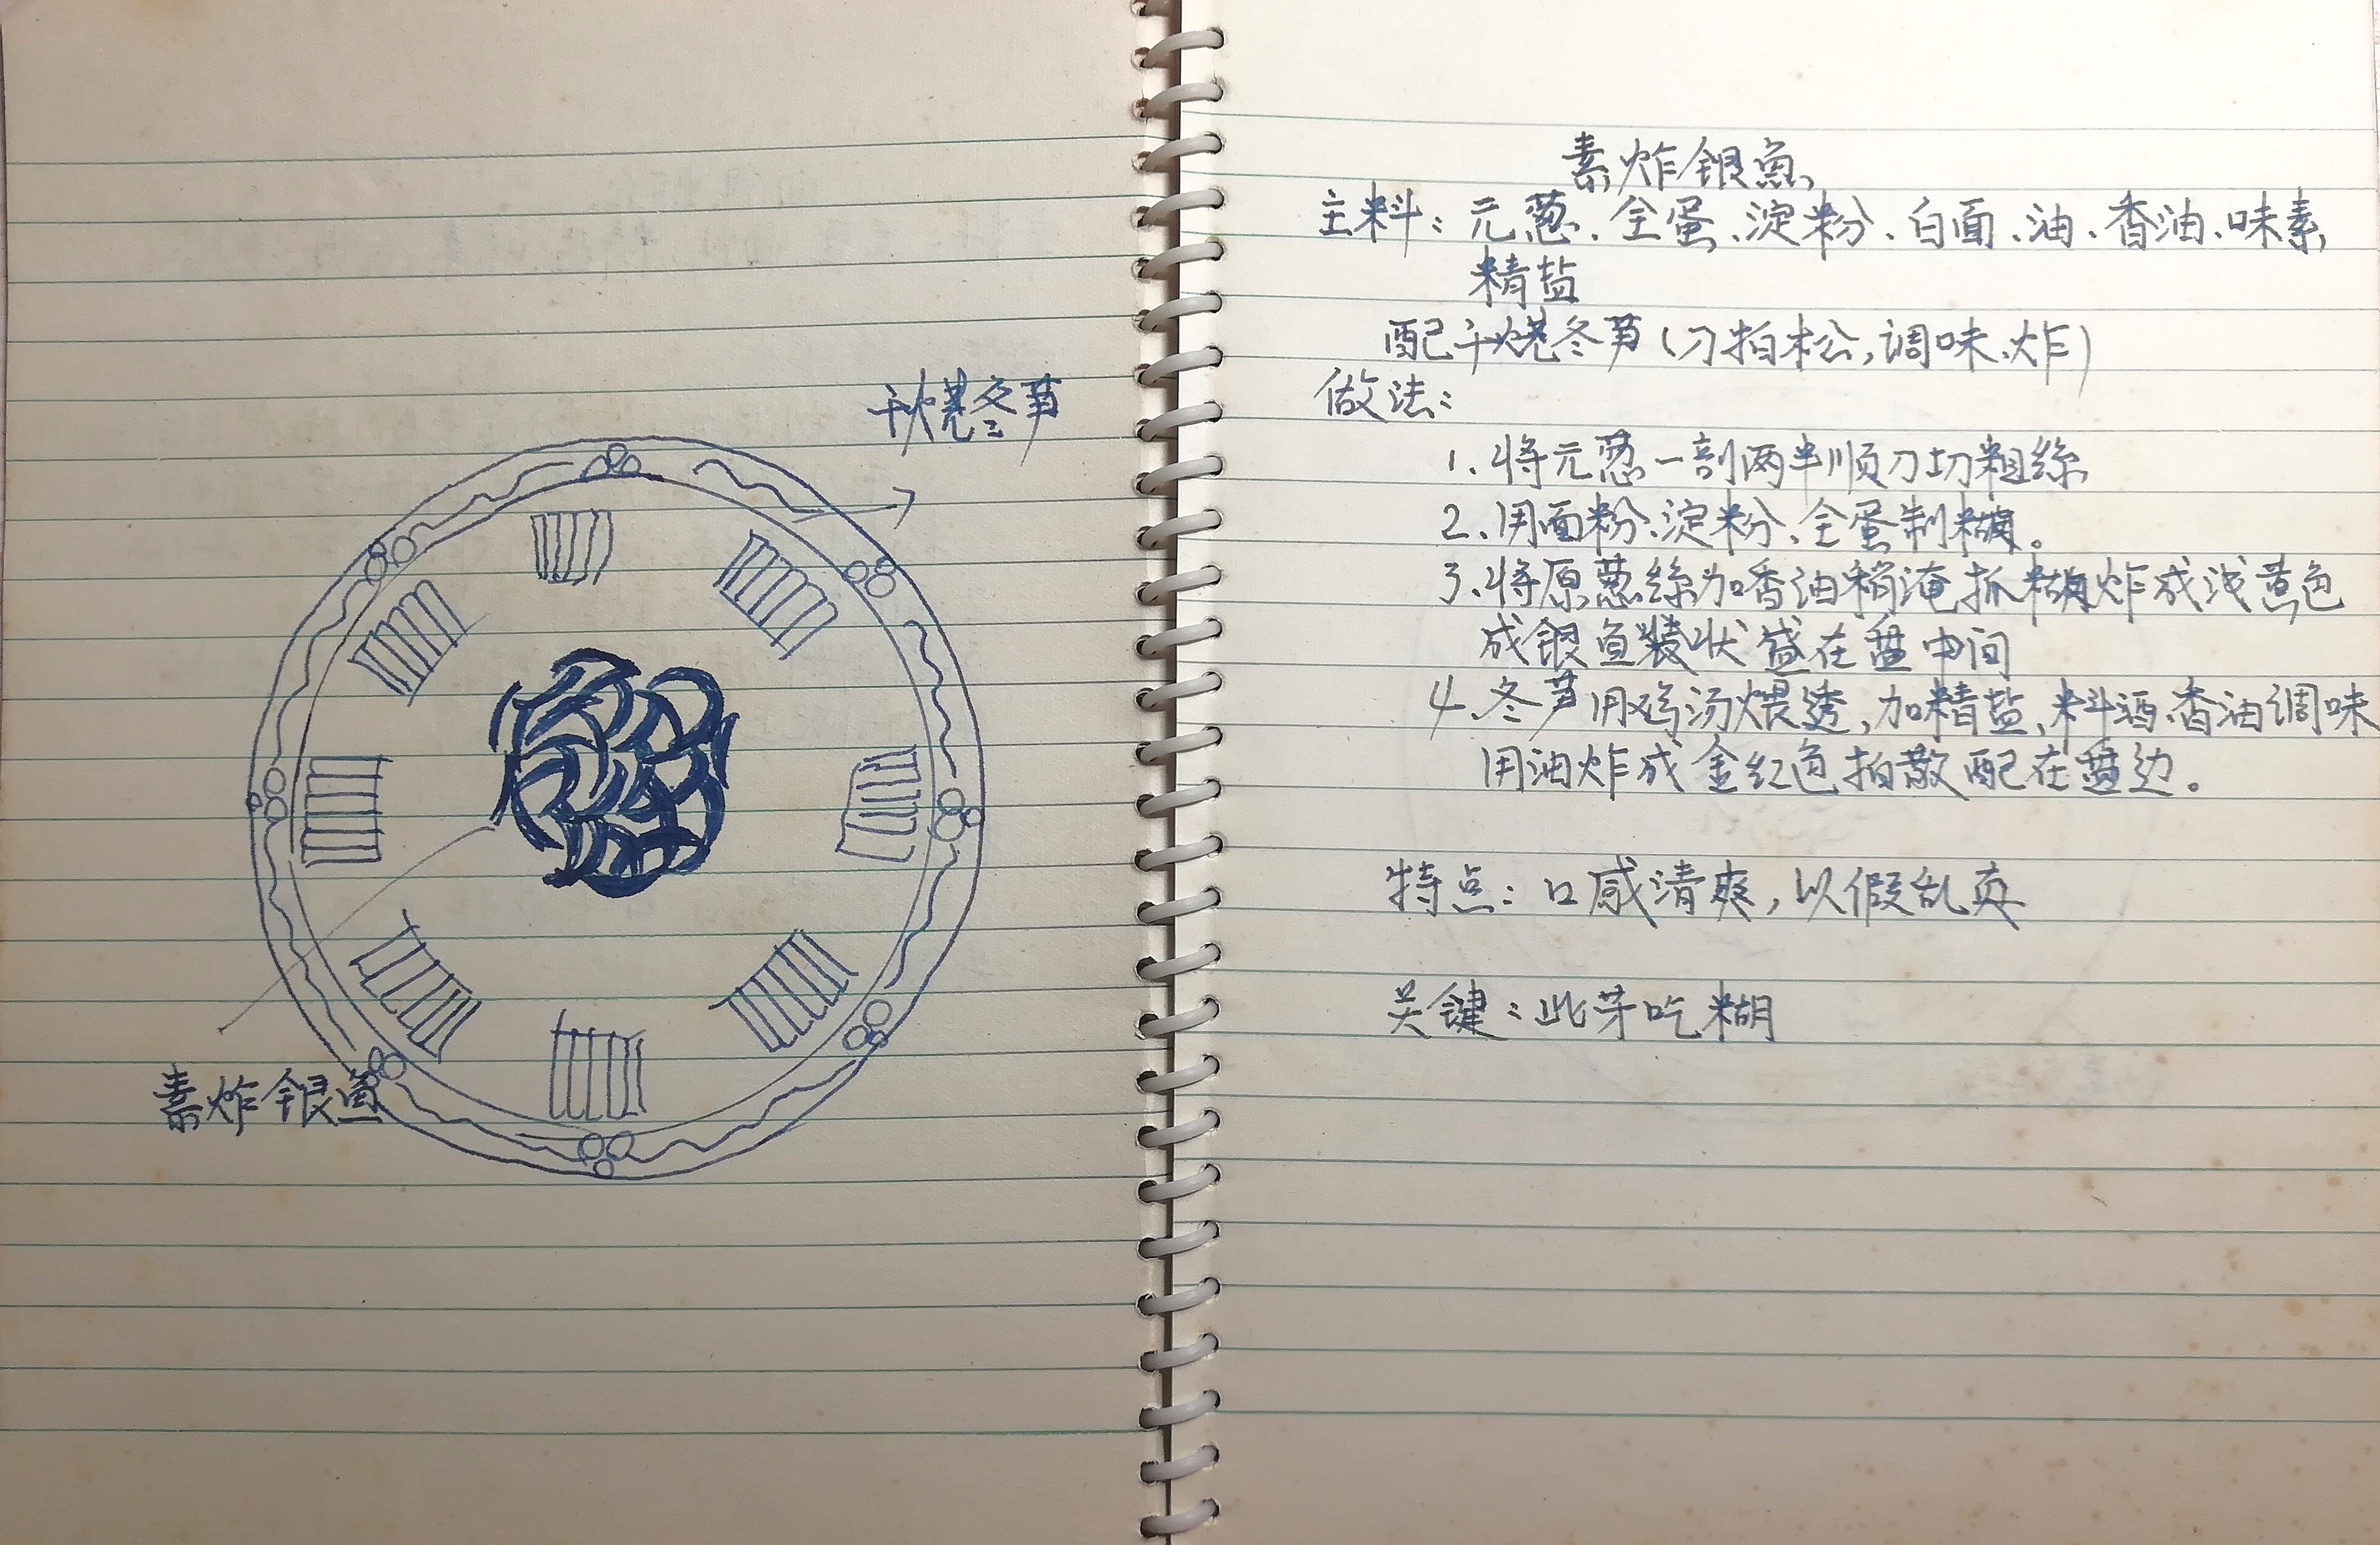 干烧冬笋
素炸银鱼
素炸银鱼
主料：元葱、全蛋、淀粉、白面、油、香油、味素
精盐
配干烧冬笋（刀拍松，调味、炸）
做法：
1、将元葱一剖两半顺刀切粗絲
2、用面粉、淀粉、全蛋制糊。
3、将原葱絲加香油稍淹抓糊炸成浅黄色
成银鱼装状盛在盘中间
4、冬笋用鸡汤煨透，加精盐、料酒、香油调味
用油炸成金红色拍散配在盘边。
特点：口感清爽，以假乱真
关键：此芽吃糊